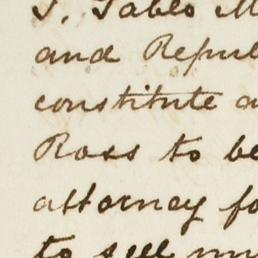 I, Pablo M
and Repub
constitute a
Ross to be
attorney fo
to sell my